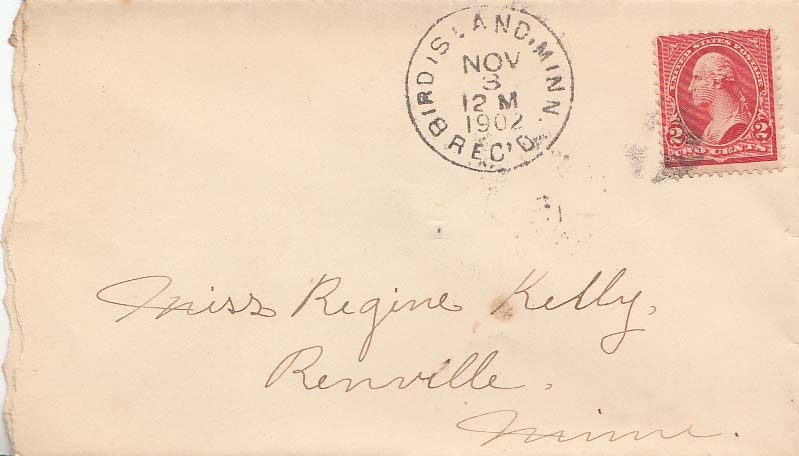 BIRD ISLAND, MINN.
NOV
3
12 M
1902
REC'D
UNITED STATES POSTAGE
2 2
TWO CENTS
Miss Regine Kelly,
Renville,
Minn.